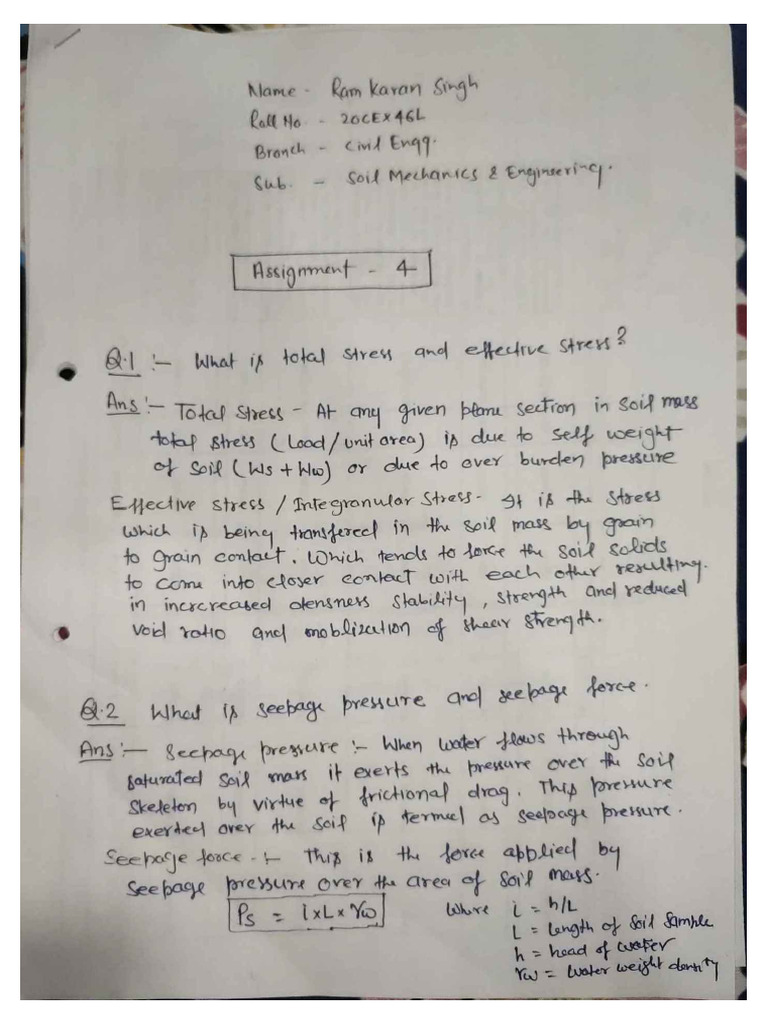 Name - Ram Karan Singh
Roll No - 20CEX46L
Branch - Civil Engg.
Sub. - Soil Mechanics & Engineering.
Assignment - 4
Q.1 :- What is total stress and effective stress?
Ans :- Total Stress - At any given plane section in soil mass
total stress (Load/unit area) is due to self weight
of soil (Ws + Ww) or due to over burden pressure
Effective stress / Integranular Stress - It is the stress
which is being transfered in the soil mass by grain
to grain contact. Which tends to force the soil solids
to come into closer contact with each other resulting.
in increreased densness stability, strength and reduced
void ratio and moblization of shear strength.
Q.2 What is seepage pressure and seepage force.
Ans :- Seepage pressure :- When water flows through
saturated soil mass it exerts the pressure over the soil
skeleton by virtue of frictional drag. This pressure
exerted over the soil is termed as seepage pressure.
Seepage force - :- This is the force applied by
seepage pressure over the area of soil mass.
Ps = i×L×γw where i = h/L
L = Length of soil sample
h = head of water
γw = water weight density